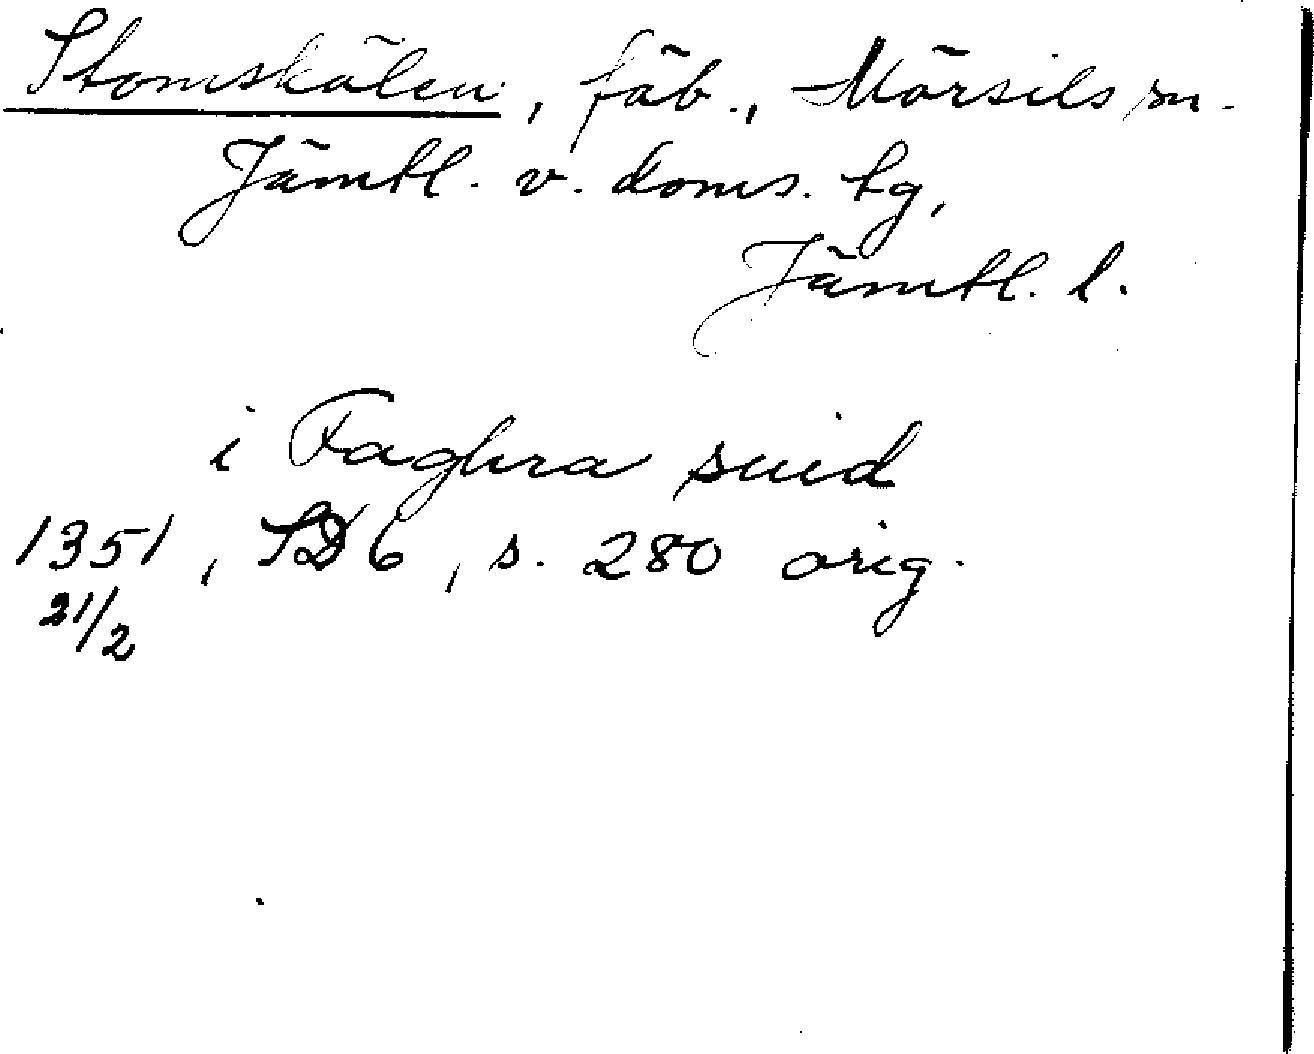 Stomskälen, fäb., Mörsils sn.
Jämtl. v. doms. tg,
Jämtl. l.
i Faghra suid
1351, SD 6, s. 280 orig.
21/2